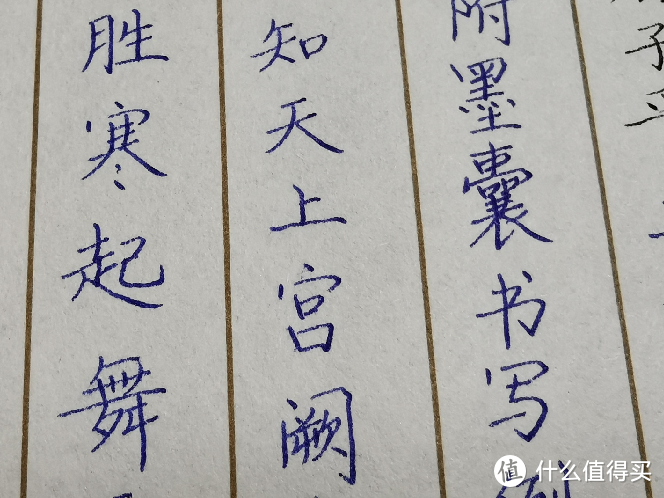 附墨囊书写
知天上宫阙
胜寒起舞
值 什么值得买